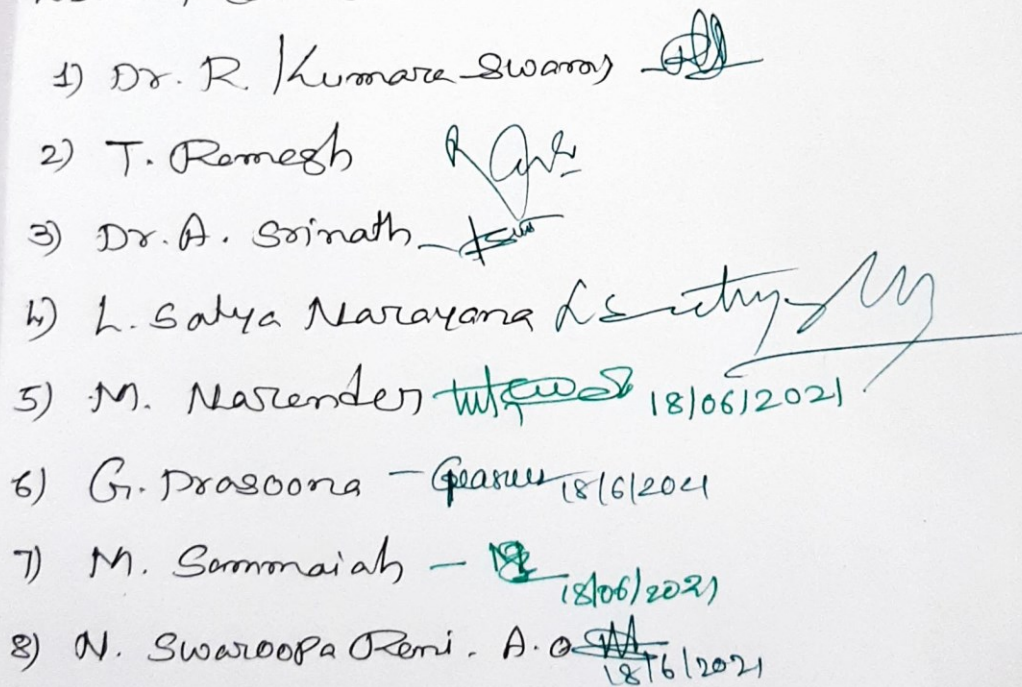 1) Dr. R. Kumara Swamy
2) T. Ramesh
3) Dr. A. Srinath
4) L. Satya Narayana
5) M. Narender 18/06/2021
6) G. Prasoona - 18/6/2021
7) M. Sammaiah - 18/06/2021
8) N. Swaroopa Rani. A.O 18/6/2021